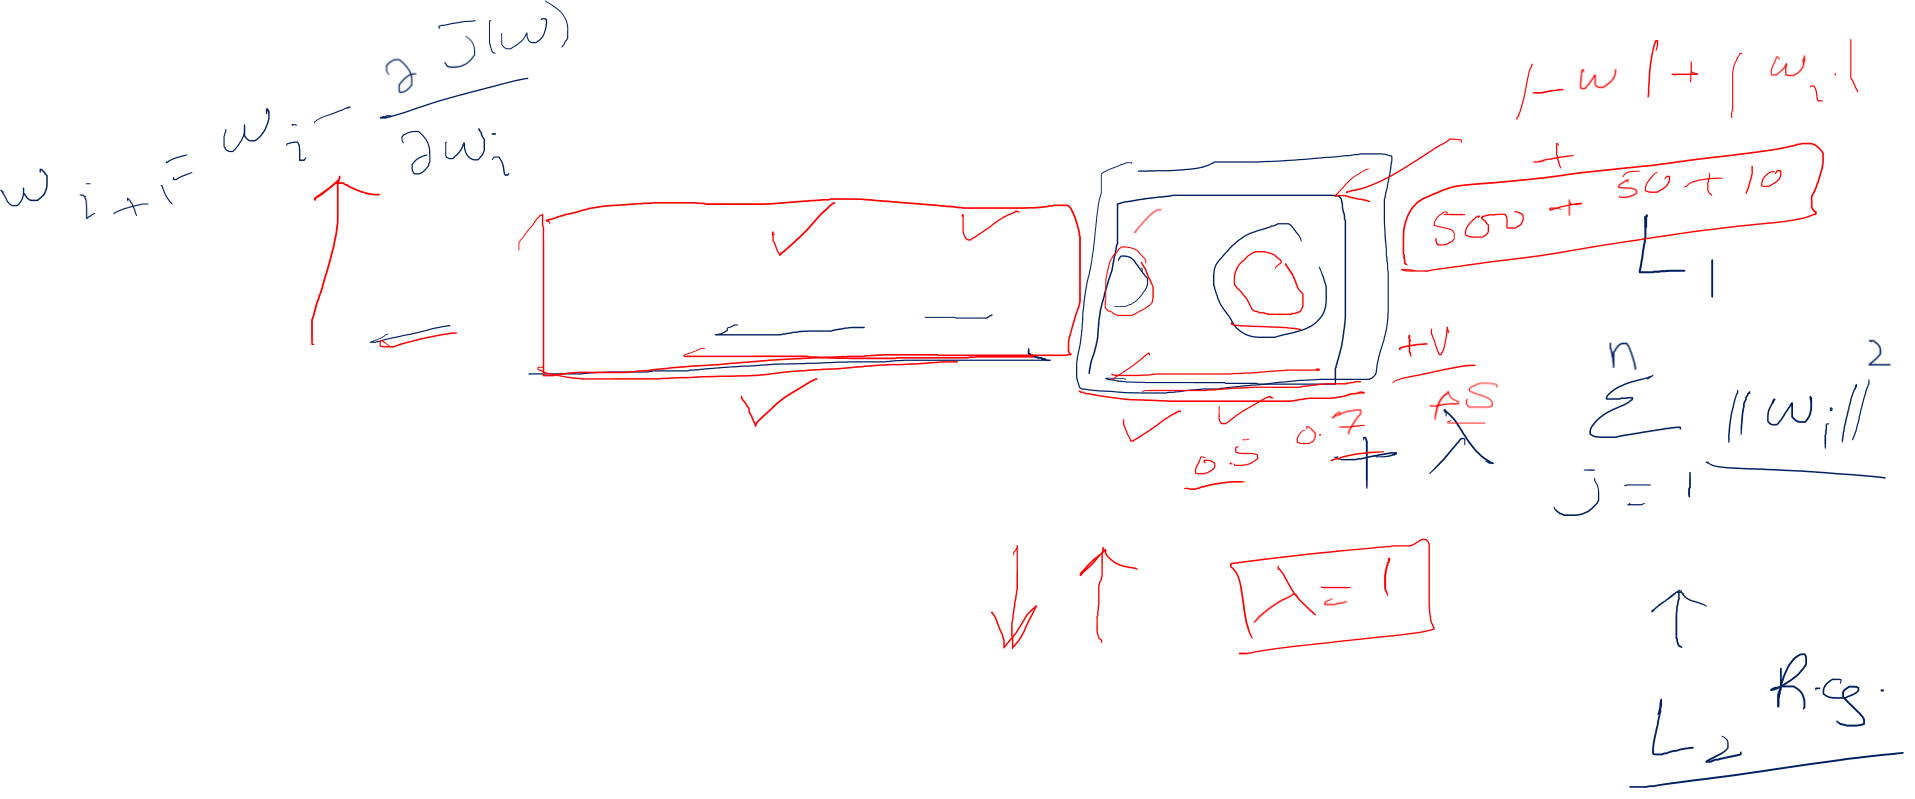 w i+1 = w i - ∂ J(w) / ∂ w i
|-w| + |w i|
+
500 + 50 + 10
L 1
+v
+5
0.7
0.5
+ λ n Σ j = 1 ||w i|| 2
λ = 1
L 2 Reg.